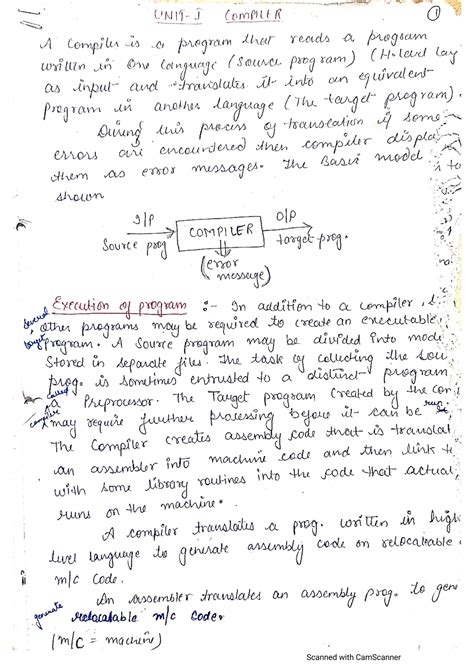 UNIT-I COMPILER
1
A Compiler is a program that reads a program
written in one language (Source program) (H-level lang
as input and translates it into an equivalent
Program in another language (The target program).
During this process of translation if some
errors are encountered then compiler displa
them as error messages. The Basic model is to
shown
I/P O/P
Source prog COMPILER target prog.
(error
message)
Execution of program :- In addition to a compiler,
Several
other programs may be required to create an executable
Program. A Source program may be divided into modu
Stored in separate files. The task of collecting the Sou
prog. is sometimes entrusted to a distinct program
called
a Preprocessor. The Target program created by the com
compiler may require further processing before it can be run
The Compiler creates assembly code that is translat
an assembler into machine code and then link t
with some library routines into the code that actual
runs on the machine.
A compiler translates a prog. written in high
level language to generate assembly code on relocatable
m/c Code.
An Assembler translates an assembly prog. to gen
generate relocatable m/c Code.
(m/c = machine)
Scanned with CamScanner